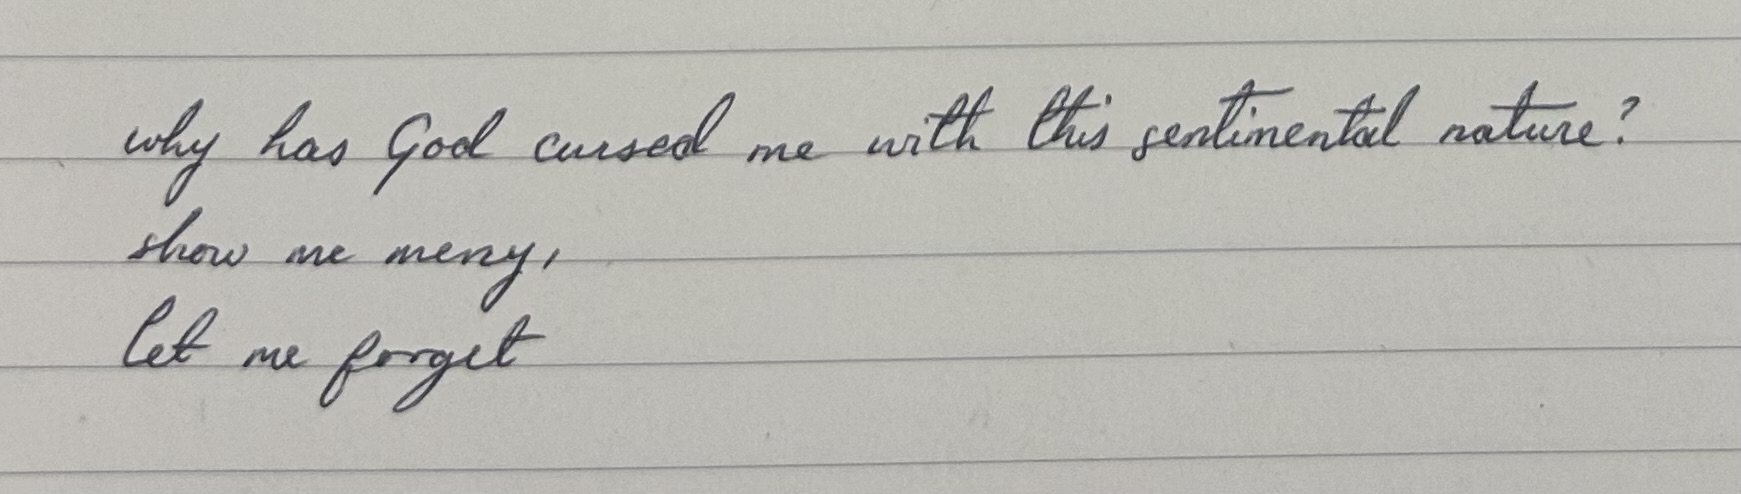 why has God cursed me with this sentimental nature?
show me mercy,
let me forget